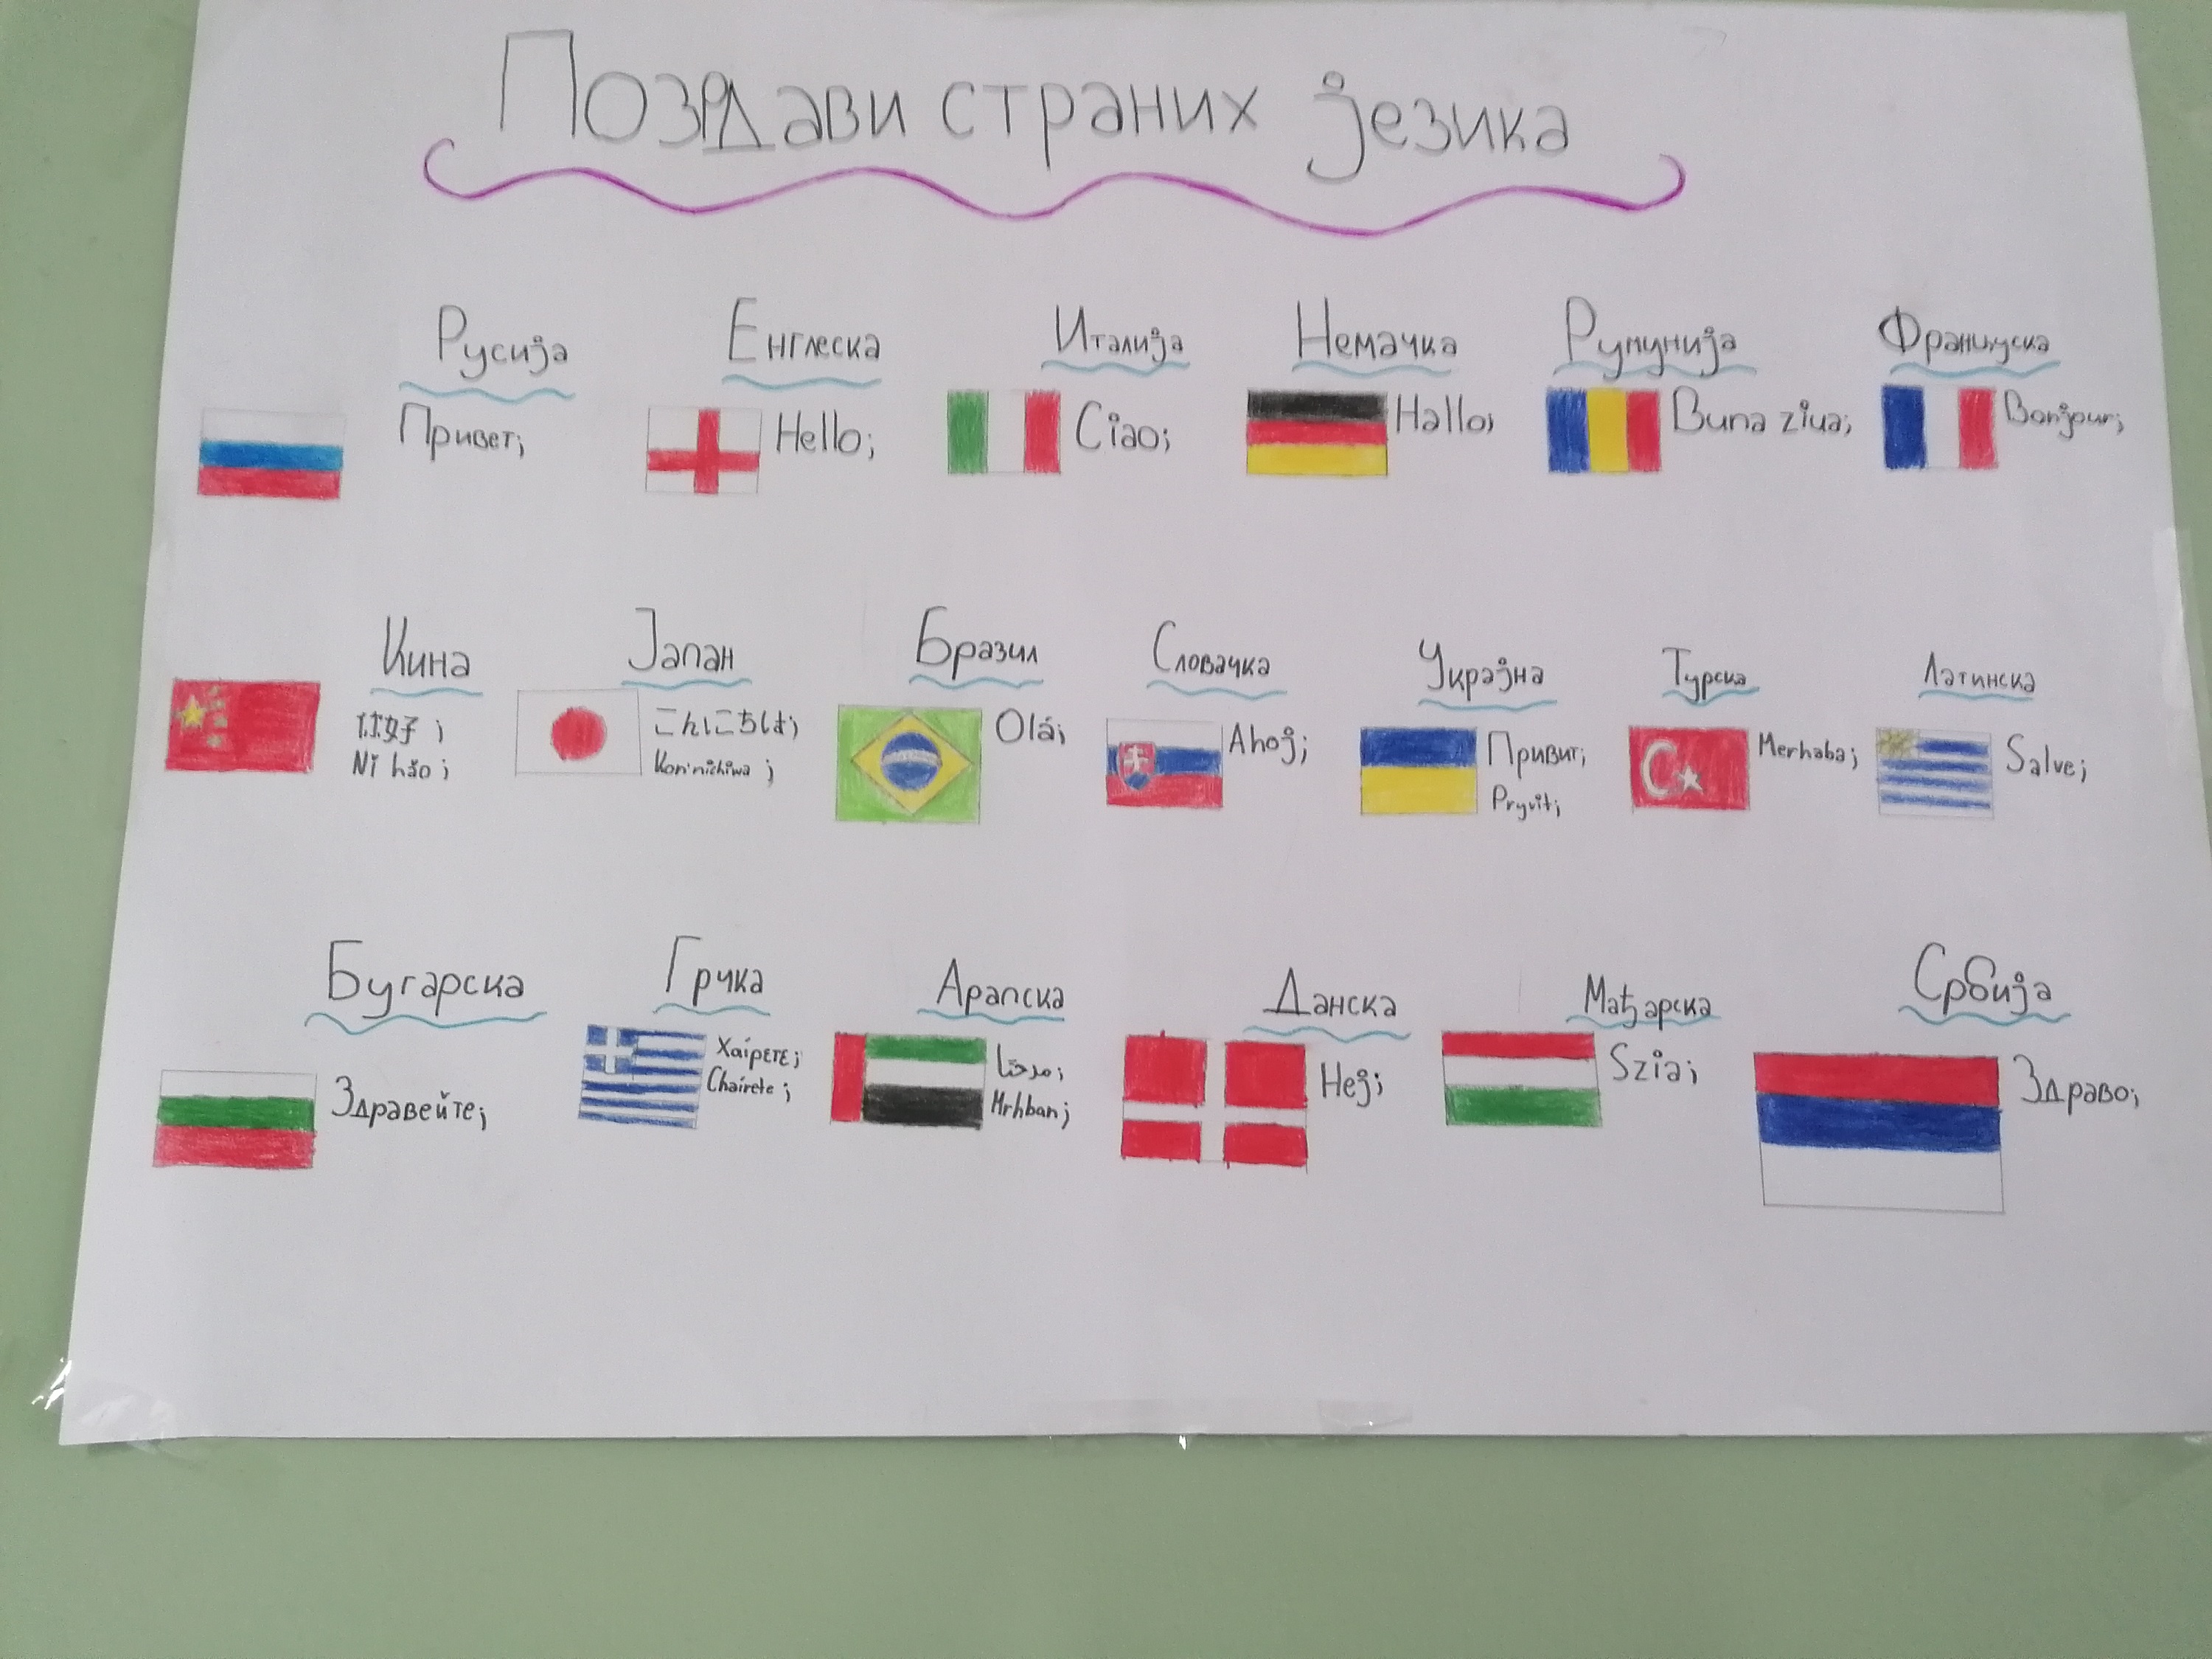 Поздрави страних језика
Русија
Привет;
Енглеска
Hello;
Италија
Ciao;
Немачка
Hallo;
Румунија
Buna ziua;
Француска
Bonjour;
Кина
你好;
Nǐ hǎo;
Јапан
こんにちは;
Kon'nichiwa;
Бразил
Olá;
Словачка
Ahoj;
Украјна
Привит;
Pryvit;
Турска
Merhaba;
Латинска
Salve;
Бугарска
Здравейте;
Грчка
Χαίρετε;
Chaírete;
Арапска
مرحبًا;
Mrhban;
Данска
Hej;
Мађарска
Szia;
Србија
Здраво;